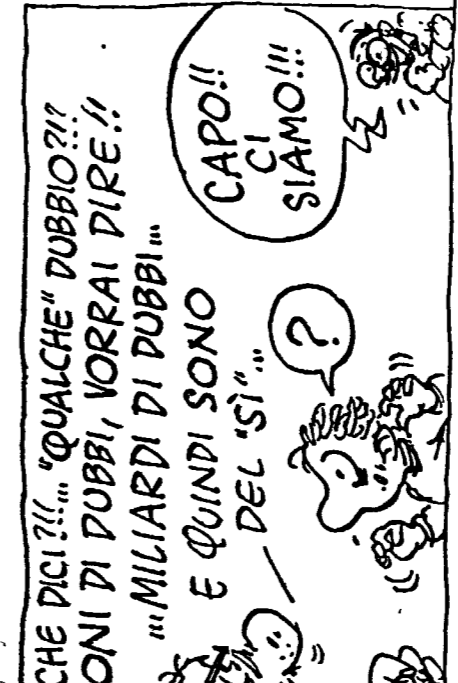 CHE DICI?!!... "QUALCHE" DUBBIO?!?
ONI DI DUBBI, VORRAI DIRE!!
...MILIARDI DI DUBBI...
E QUINDI SONO
DEL "SÌ"...
?
CAPO!!
CI
SIAMO!!!